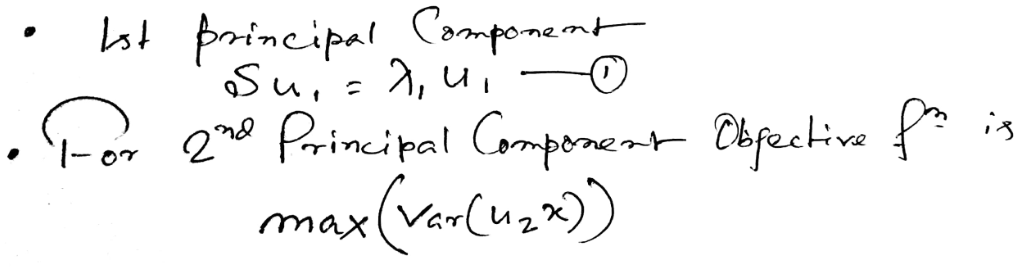 • 1st principal Component
Su₁ = λ₁ u₁ —①
• For 2nd Principal Component Objective fn is
max(Var(u₂x))